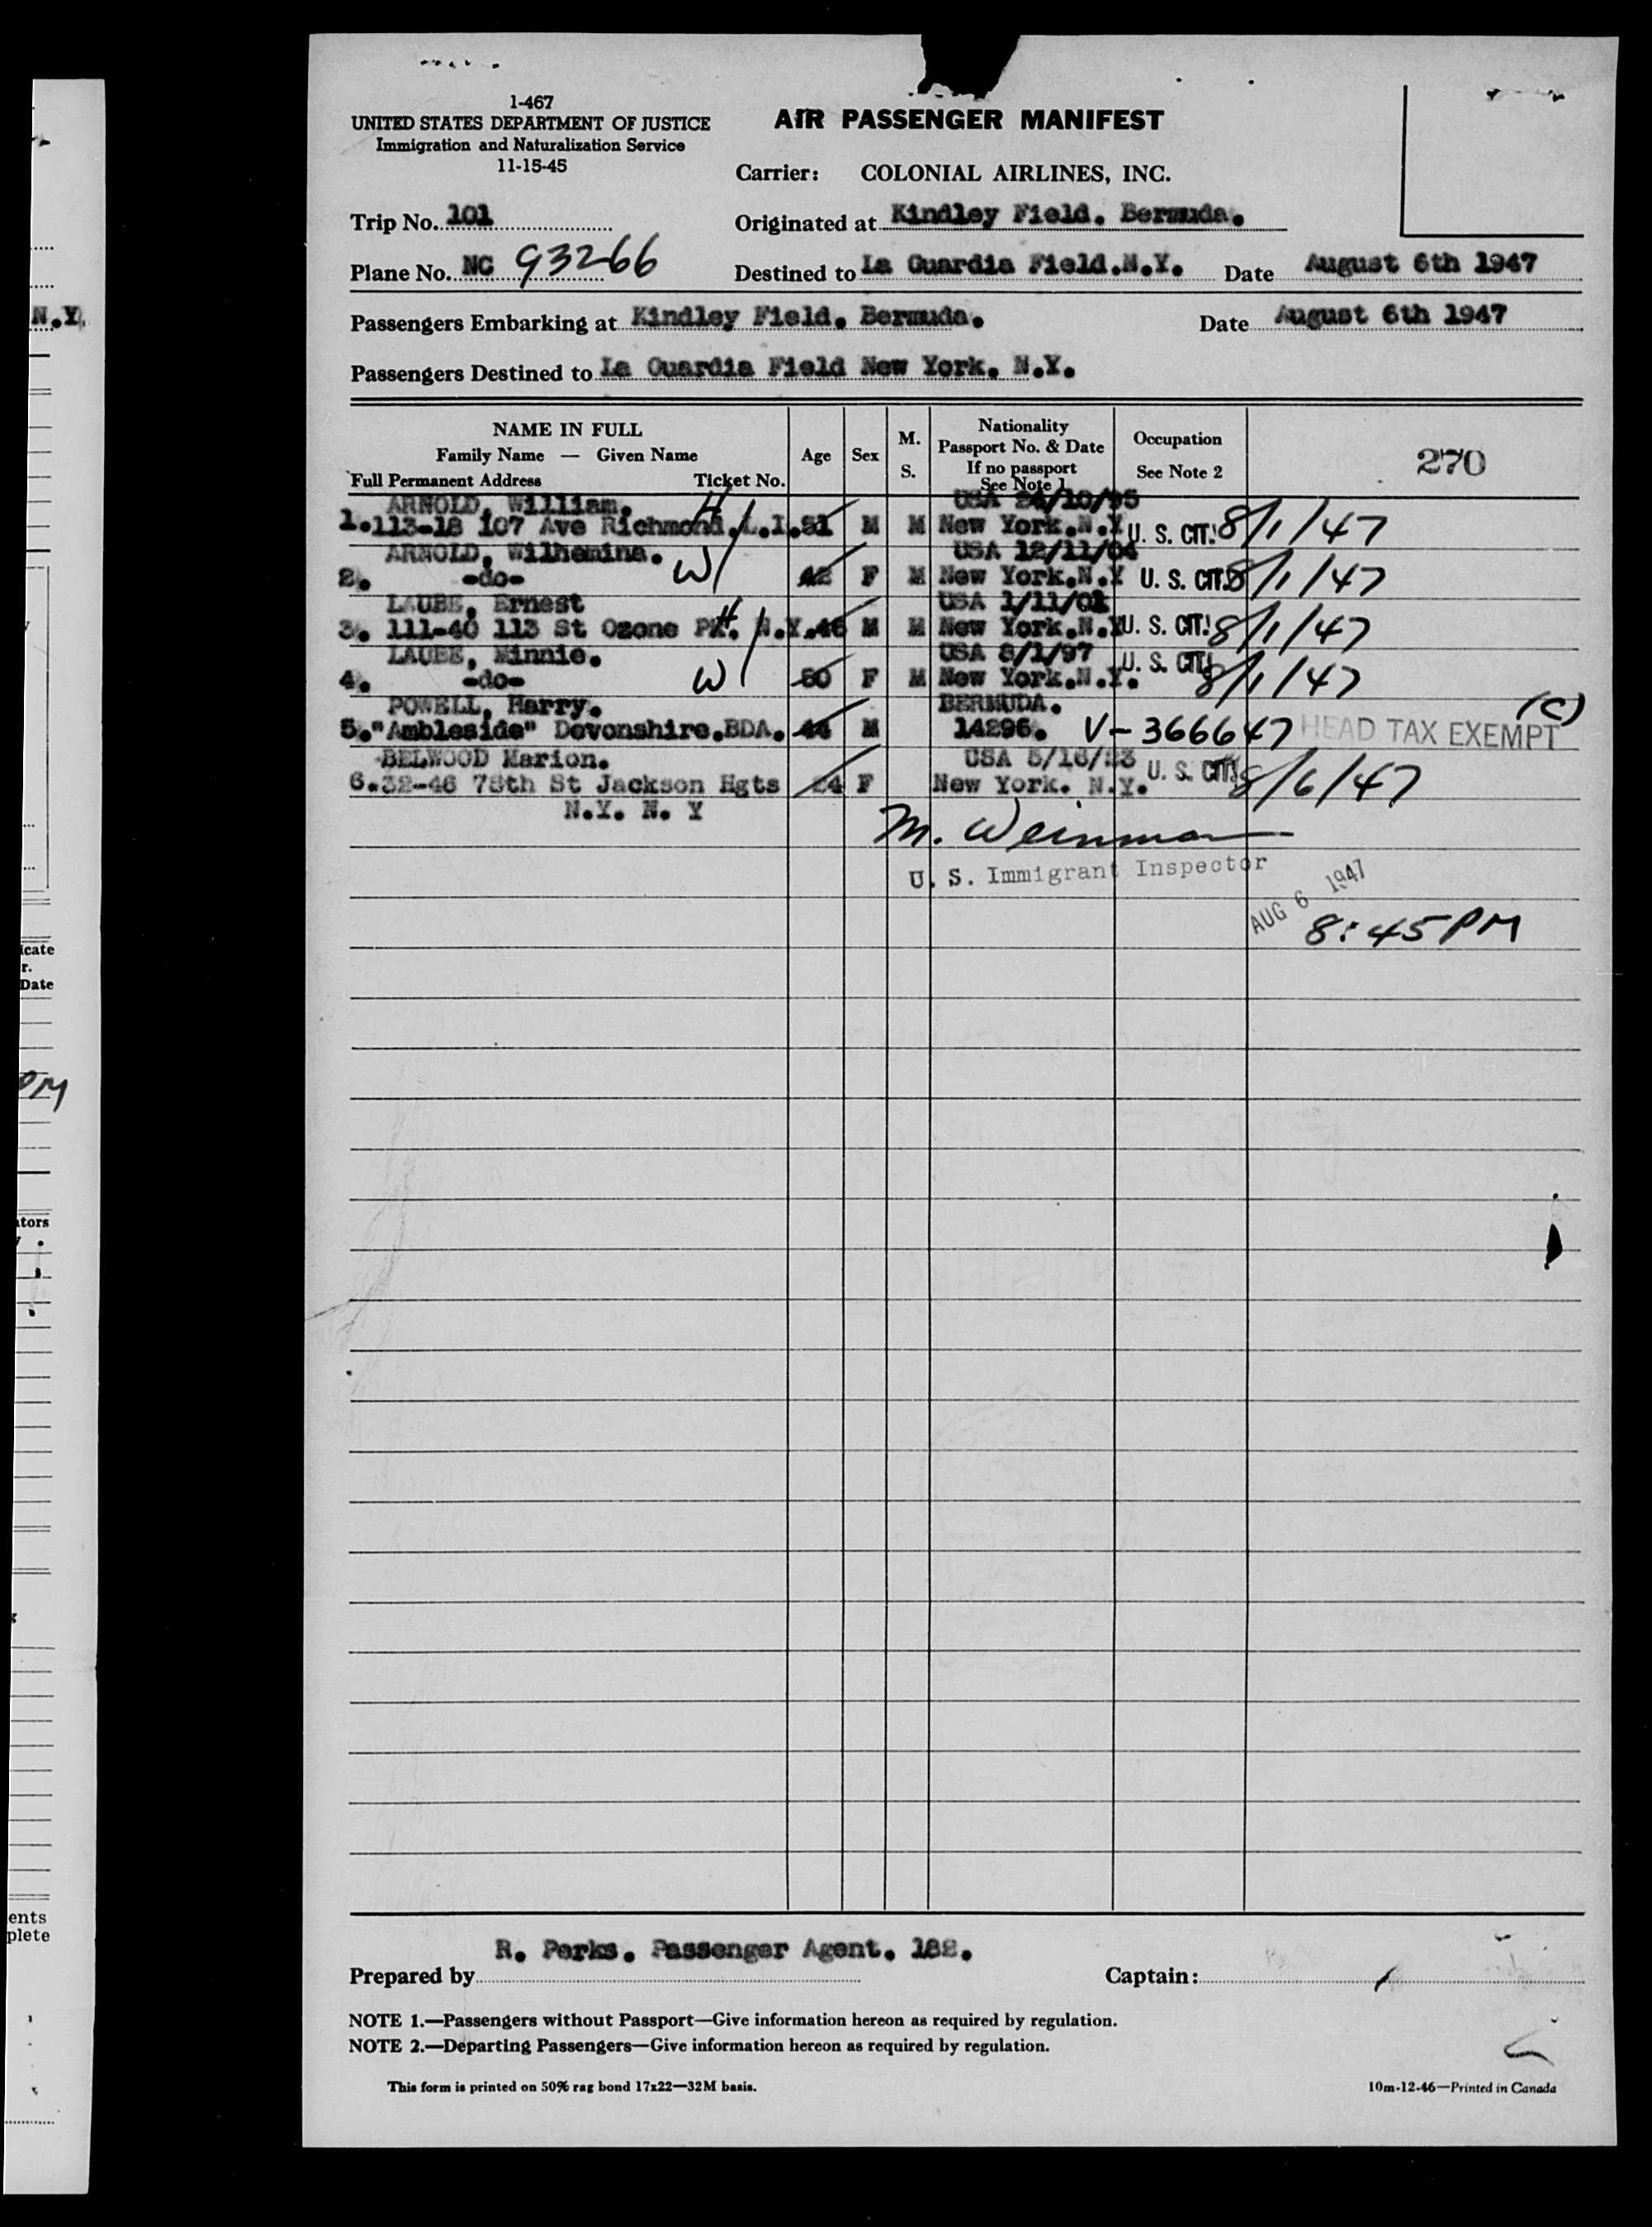 1-467
UNITED STATES DEPARTMENT OF JUSTICE
Immigration and Naturalization Service
11-15-45
AIR PASSENGER MANIFEST
Carrier: COLONIAL AIRLINES, INC.
Trip No. 101
Originated at Kindley Field. Bermuda.
Plane No. NC 93266
Destined to La Guardia Field.N.Y. Date August 6th 1947
Passengers Embarking at Kindley Field. Bermuda. Date August 6th 1947
Passengers Destined to La Guardia Field New York. N.Y.
NAME IN FULL
Family Name — Given Name
Full Permanent Address Ticket No.
Age
Sex
M.
S.
Nationality
Passport No. & Date
If no passport
See Note 1
Occupation
See Note 2
270
ARNOLD, William. H USA /10/95
1. 113-18 107 Ave Richmond.L.I. 51 M M New York.N.Y U. S. CIT. 8/1/47
ARNOLD, Wilhemina. W USA 12/11/04
2. -do- 42 F M New York.N.Y U. S. CIT. 8/1/47
LAUBE, Ernest H USA 1/11/01
3. 111-40 113 St Ozone PK. N.Y. 46 M M New York.N.Y U. S. CIT. 8/1/47
LAUBE, Minnie. W USA 8/1/97
4. -do- 50 F M New York.N.Y. U. S. CIT. 8/1/47
POWELL, Harry. BERMUDA. (C)
5. "Ambleside" Devonshire.BDA. 44 M 14296. V-366647 HEAD TAX EXEMPT
BELWOOD Marion. USA 5/16/23
6. 32-46 78th St Jackson Hgts 24 F New York. N.Y. U. S. CIT. 8/6/47
N.Y. N. Y
M. Weinman
U. S. Immigrant Inspector
AUG 6 1947
8:45PM
R. Perks. Passenger Agent. 182.
Prepared by
Captain:
NOTE 1.—Passengers without Passport—Give information hereon as required by regulation.
NOTE 2.—Departing Passengers—Give information hereon as required by regulation.
This form is printed on 50% rag bond 17x22—32M basis.
10m-12-46—Printed in Canada
N.Y.
icate
r.
Date
PM
ators
ents
plete